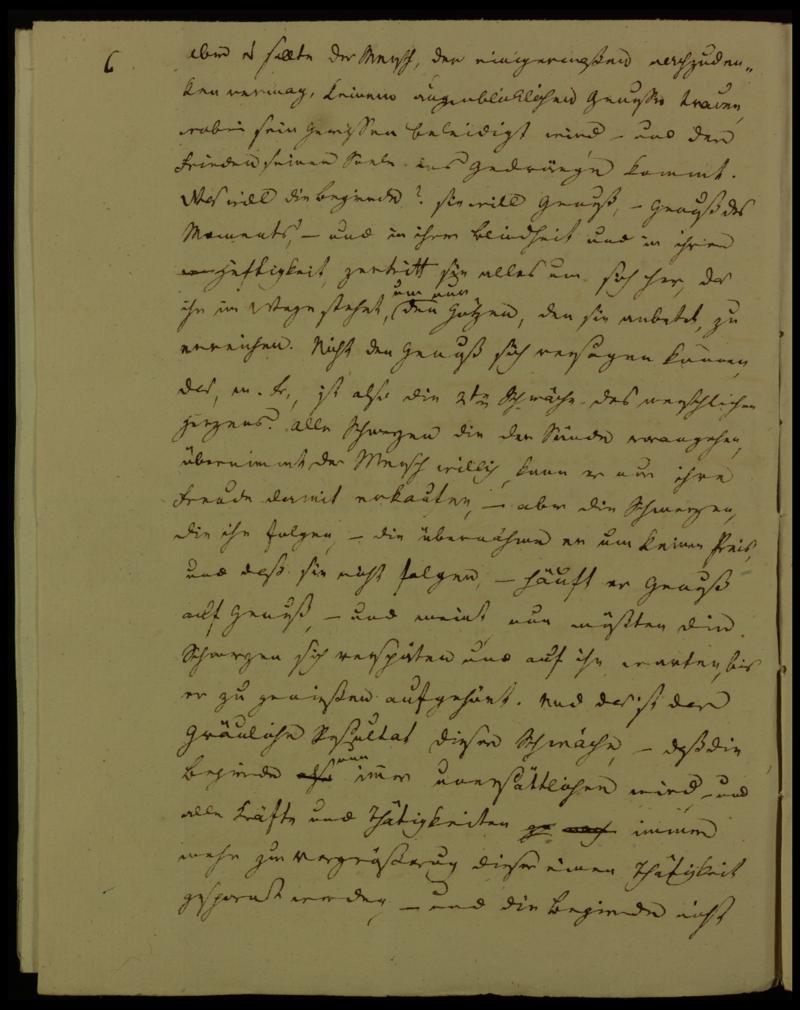 6
aber es sollte der Mensch, der einigermaßen nachzuden-
ken vermag, keinem augenblicklichen Genusse trauen,
wobei sein Gewissen beleidigt wird – und der
Frieden seiner Seele ins Gedränge kommt.
Was will die Begierde? sie will Genuß, – Genuß des
Moments, – und in ihrer Blindheit und in ihrer
Heftigkeit zertritt sie alles um sich her, das
ihr im Wege stehet, um nur den Götzen, den sie anbetet, zu
erreichen. Nicht den Genuß sich versagen können,
das, m. Fr., ist also die 2te Schwäche des menschlichen
Herzens. Alle Schmerzen die der Sünde vorangehen,
übernimmt der Mensch willig, kann er nur ihre
Freude damit erkaufen, – aber die Schmerzen,
die ihr folgen, – die übernähme er um keinen Preis,
und daß sie nicht folgen, – häuft er Genuß
auf Genuß, – und meint nun müßten die
Schmerzen sich verspäten und auf ihn warten, bis
er zu genießen aufgehört. Und das ist das
gräuliche Resultat dieser Schwäche, – daß die
Begierde nun immer unersättlicher wird, und
alle Kräfte und Thätigkeiten immer
mehr zur Vergrößerung dieser einen Thätigkeit
gespornt werden, – und die Begierde nicht